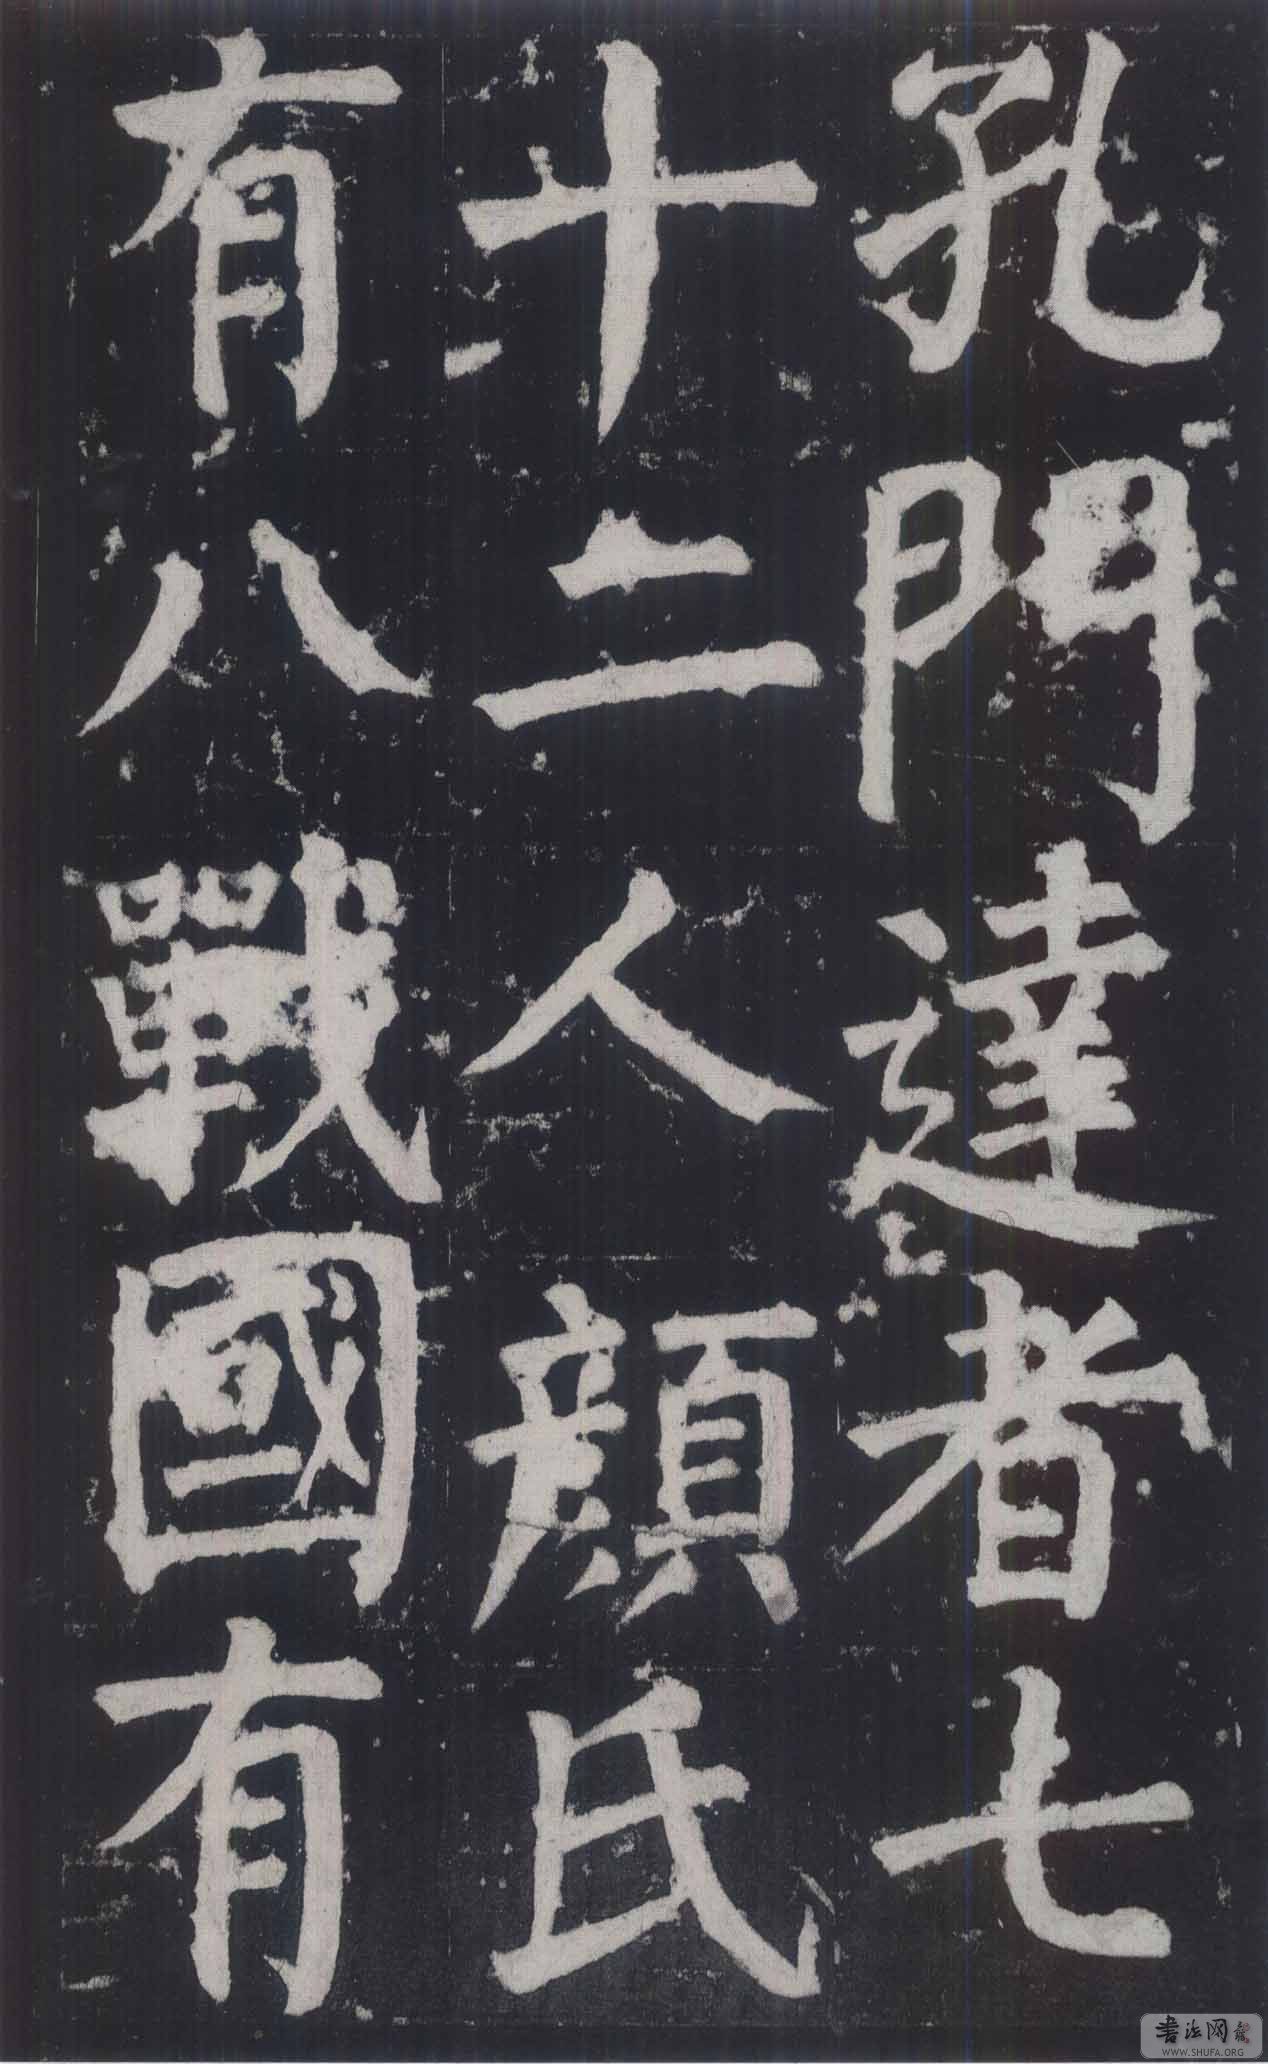 孔門達者七
十二人顏氏
有八戰國有
書法网
WWW.SHUFA.ORG